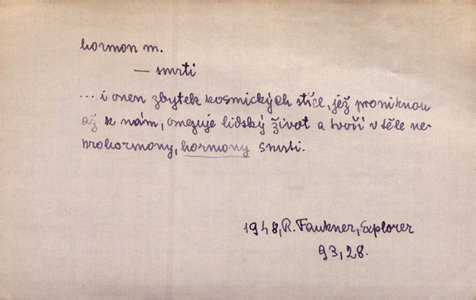 hormon m.
— smrti
... i onen zbytek kosmických střel, jež proniknou
až k nám, omezuje lidský život a tvoří v těle ne-
krohormony, hormony smrti.
1948, R. Faukner, Explorer
93, 28.